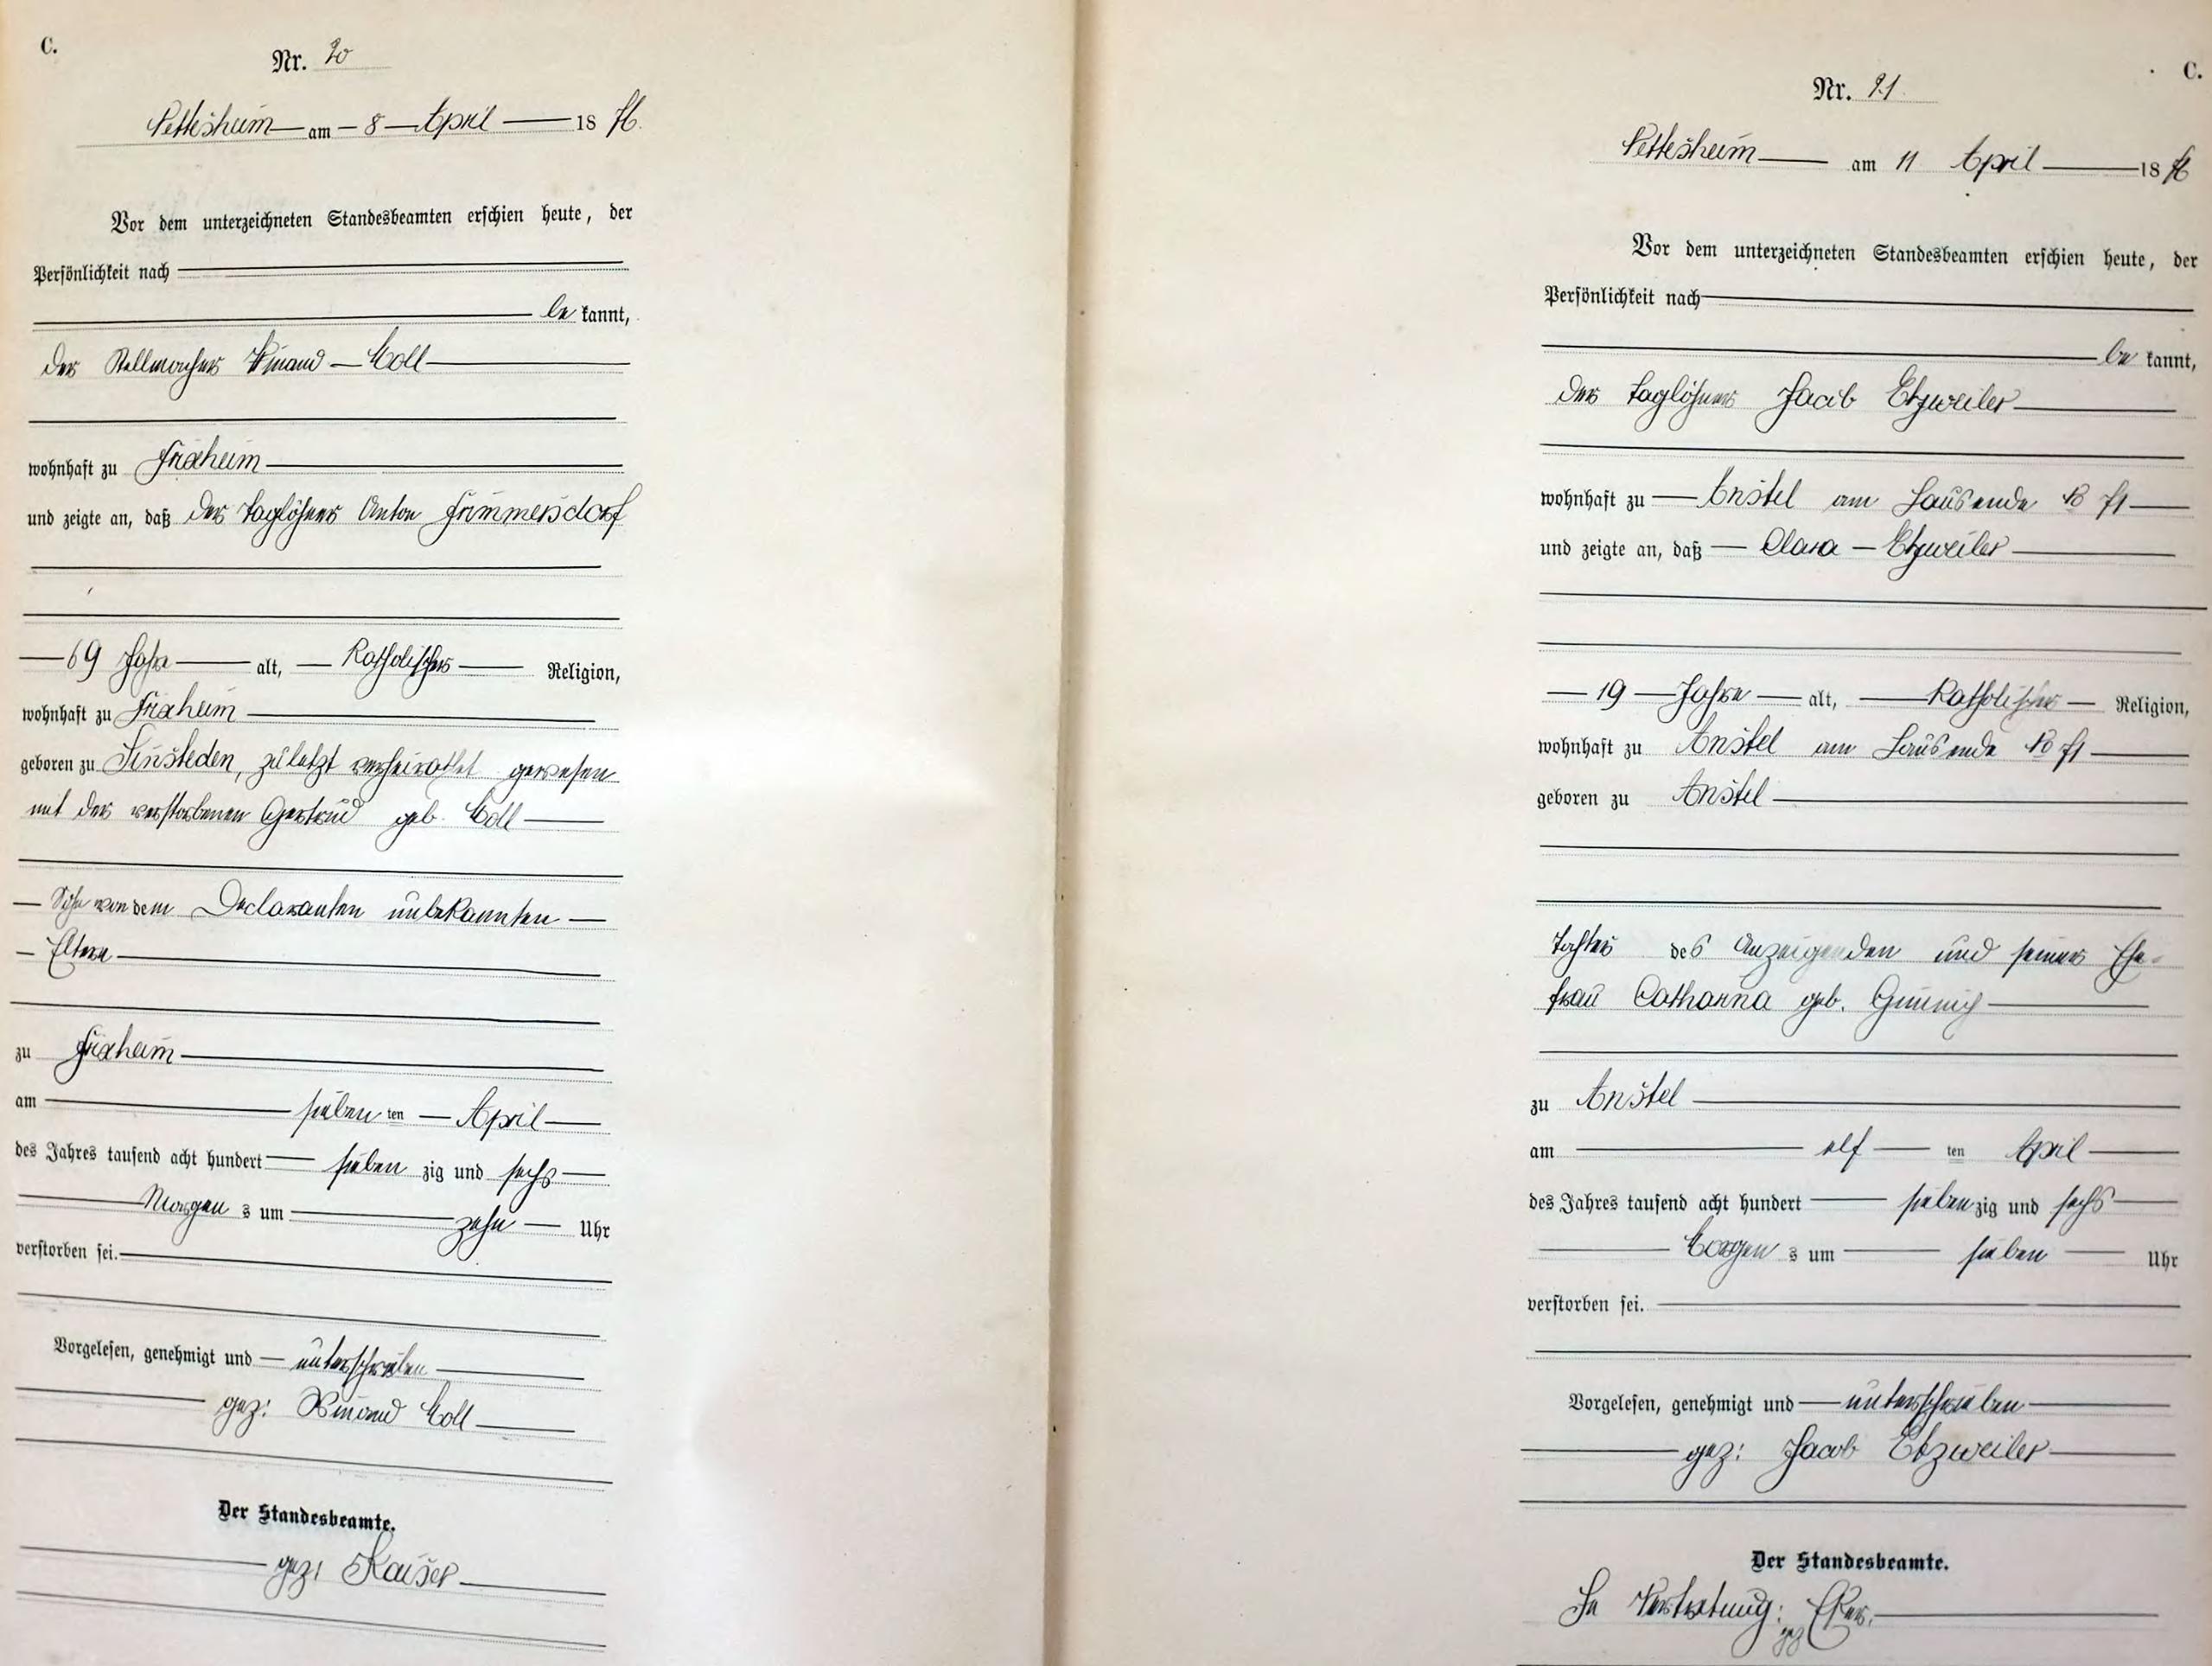 C.
Nr. 20
Nettesheim am 8 April 1876.
Vor dem unterzeichneten Standesbeamten erschien heute, der
Persönlichkeit nach
be kannt,
der Stellmacher Winand Moll
wohnhaft zu Frixheim
und zeigte an, daß der Taglöhner Anton Frimmersdorf
69 Jahre alt, Katholischer Religion,
wohnhaft zu Frixheim
geboren zu Sinsteden, zuletzt verheirathet gewesen
mit der verstorbenen Gertrud geb. Moll
Sohn von dem Declaranten unbekannten
Eltern
zu Frixheim
am sieben ten April
des Jahres tausend acht hundert sieben zig und sechs
Morgen s um zehn Uhr
verstorben sei.
Vorgelesen, genehmigt und unterschrieben
gez: Winand Moll
Der Standesbeamte.
gez: Kaiser
C.
Nr. 21.
Nettesheim am 11 April 1876
Vor dem unterzeichneten Standesbeamten erschien heute, der
Persönlichkeit nach
be kannt,
der Taglöhner Jacob Etzweiler
wohnhaft zu Anstel am Hausende No 71
und zeigte an, daß Clara Etzweiler
19 Jahre alt, Katholischer Religion,
wohnhaft zu Anstel am Hausende No 71
geboren zu Anstel
Tochter des Anzeigenden und seiner Ehe-
frau Catharina geb.
zu Anstel
am elf ten April
des Jahres tausend acht hundert sieben zig und sechs
Morgen s um sieben Uhr
verstorben sei.
Vorgelesen, genehmigt und unterschrieben
gez: Jacob Etzweiler
Der Standesbeamte.
In Vertretung:
gez